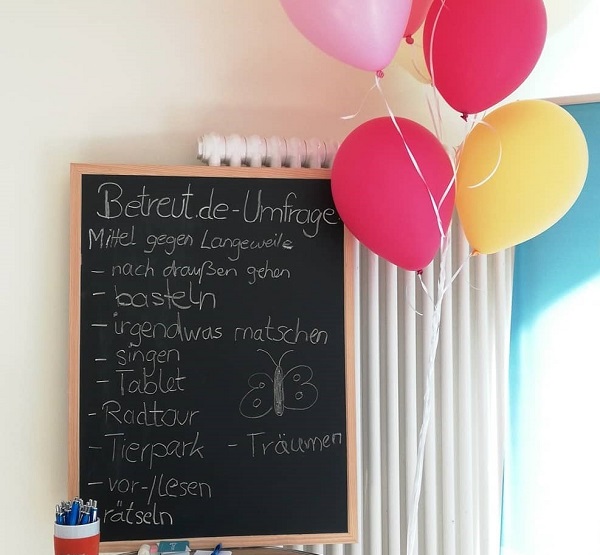 Betreut.de-Umfrage
Mittel gegen Langeweile
- nach draußen gehen
- basteln
- irgendwas matschen
- singen
- Tablet
- Radtour
- Tierpark - Träumen
- vor-/lesen
rätseln